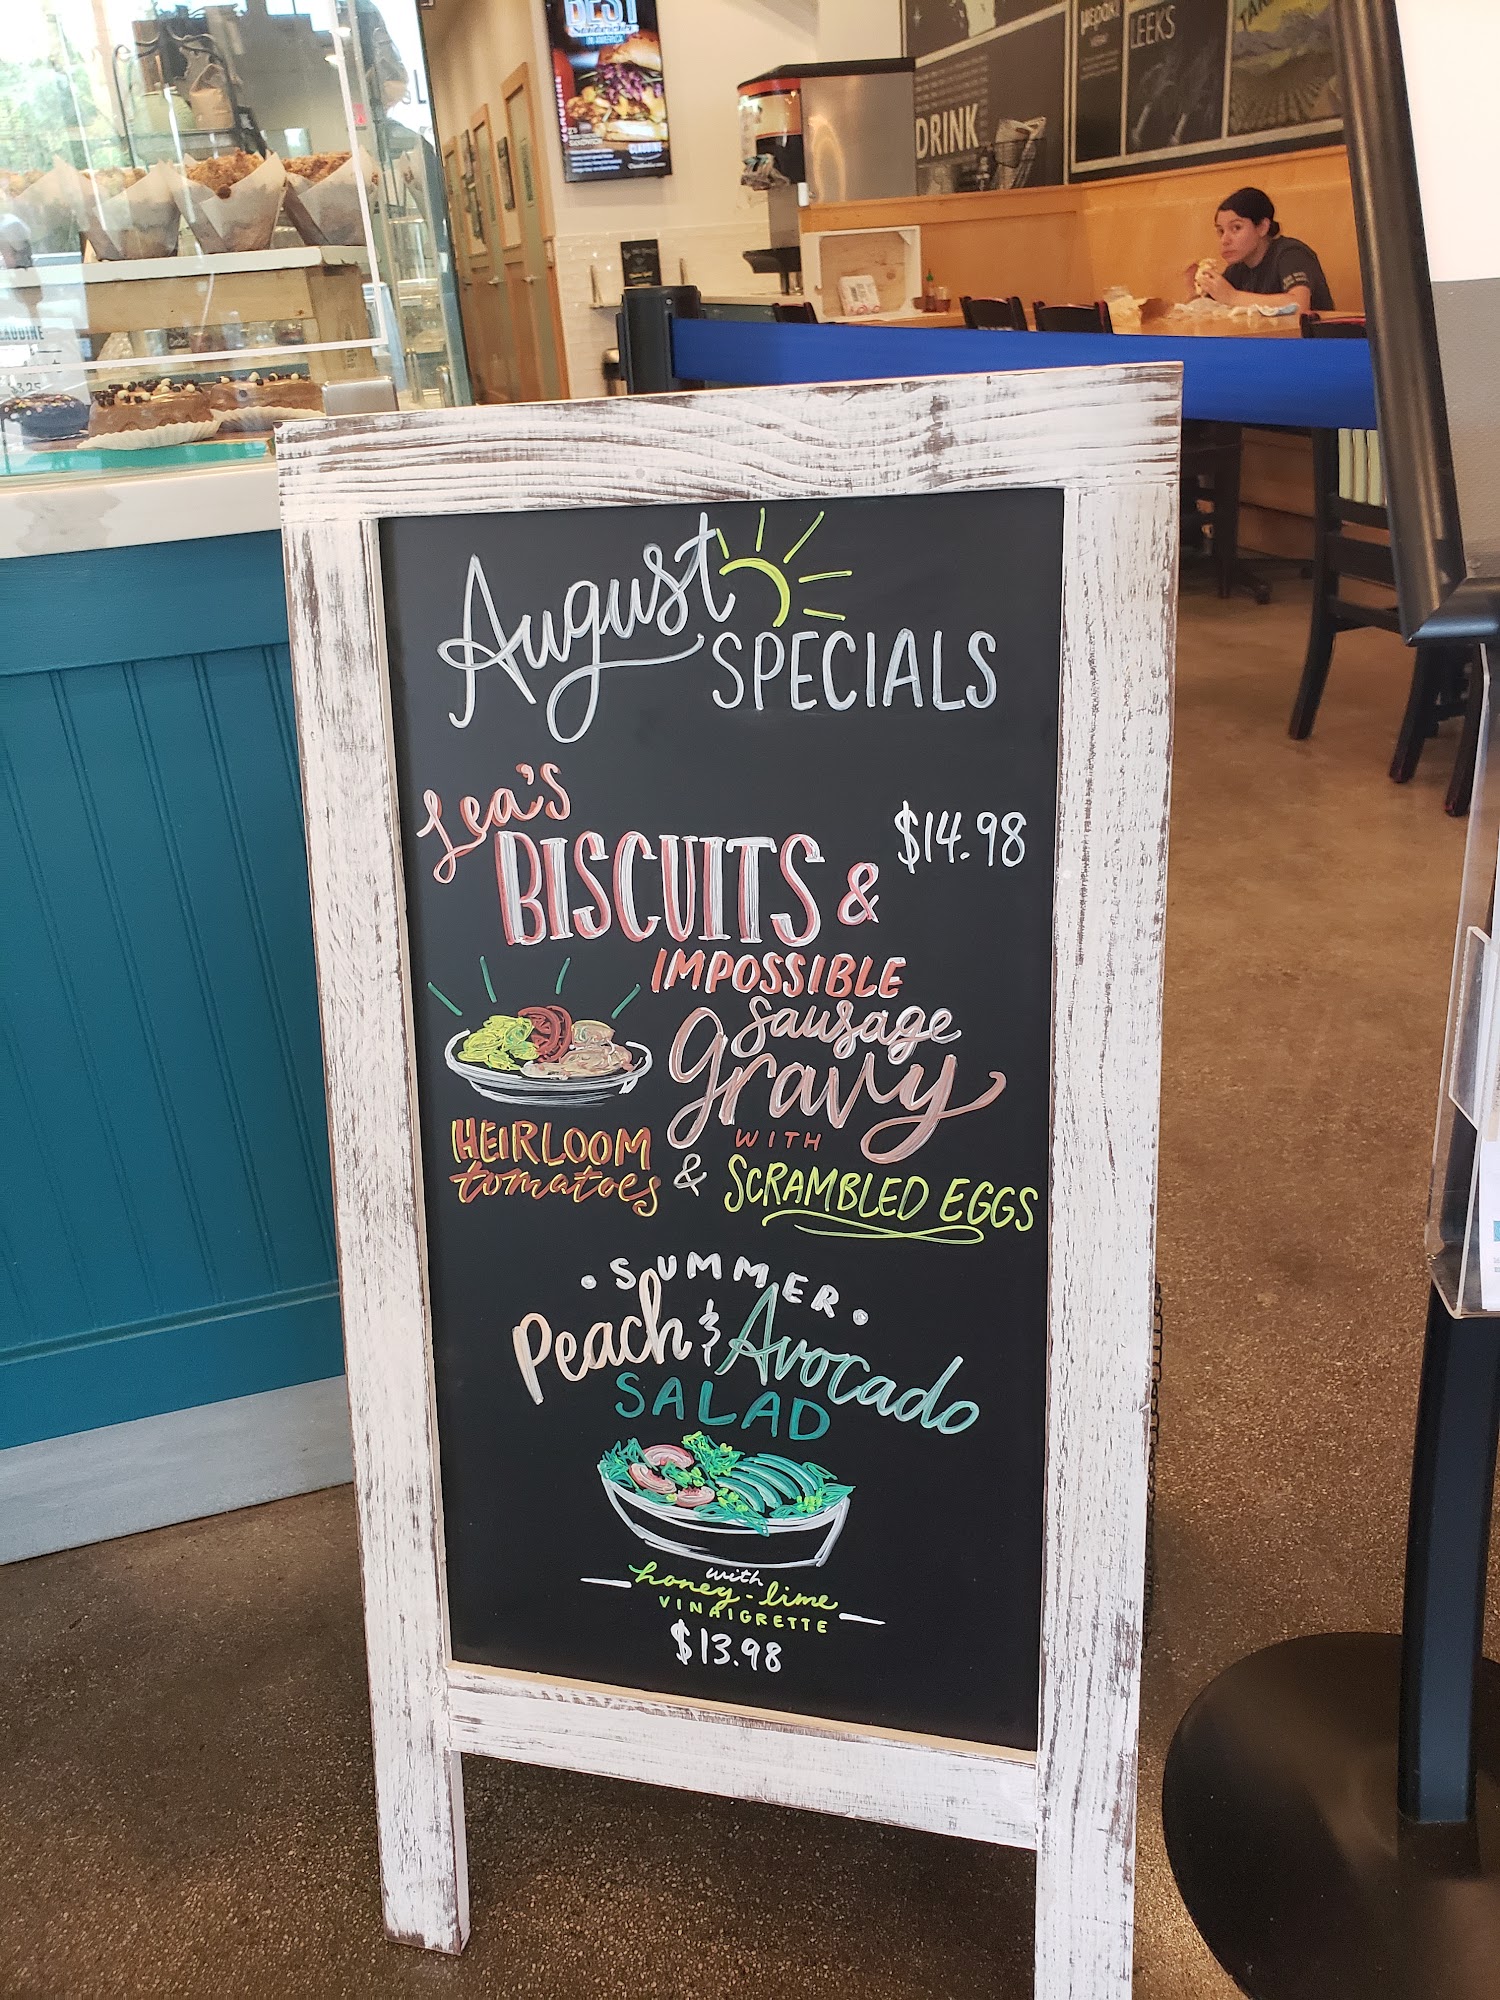 BEST
Sandwiches
IN AMERICA
CLAUDINE
DRINK
LEEKS
$3.25
August
SPECIALS
Lea's
BISCUITS &
$14.98
IMPOSSIBLE
Sausage
gravy
WITH
HEIRLOOM
tomatoes
& SCRAMBLED EGGS
• SUMMER •
Peach & Avocado
SALAD
with
honey-lime
VINAIGRETTE
$13.98